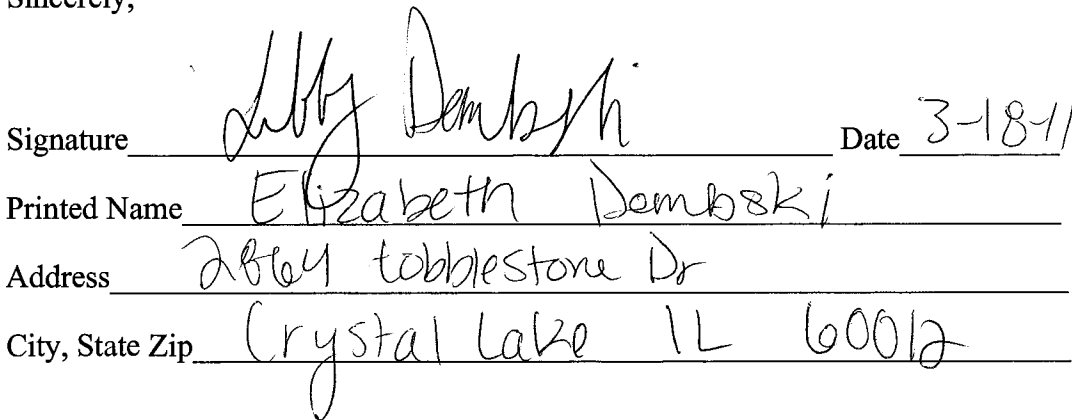 Sincerely,
Signature Libby Dembski Date 3-18-11
Printed Name Elizabeth Dembski
Address 2864 Cobblestone Dr
City, State Zip Crystal Lake IL 60012